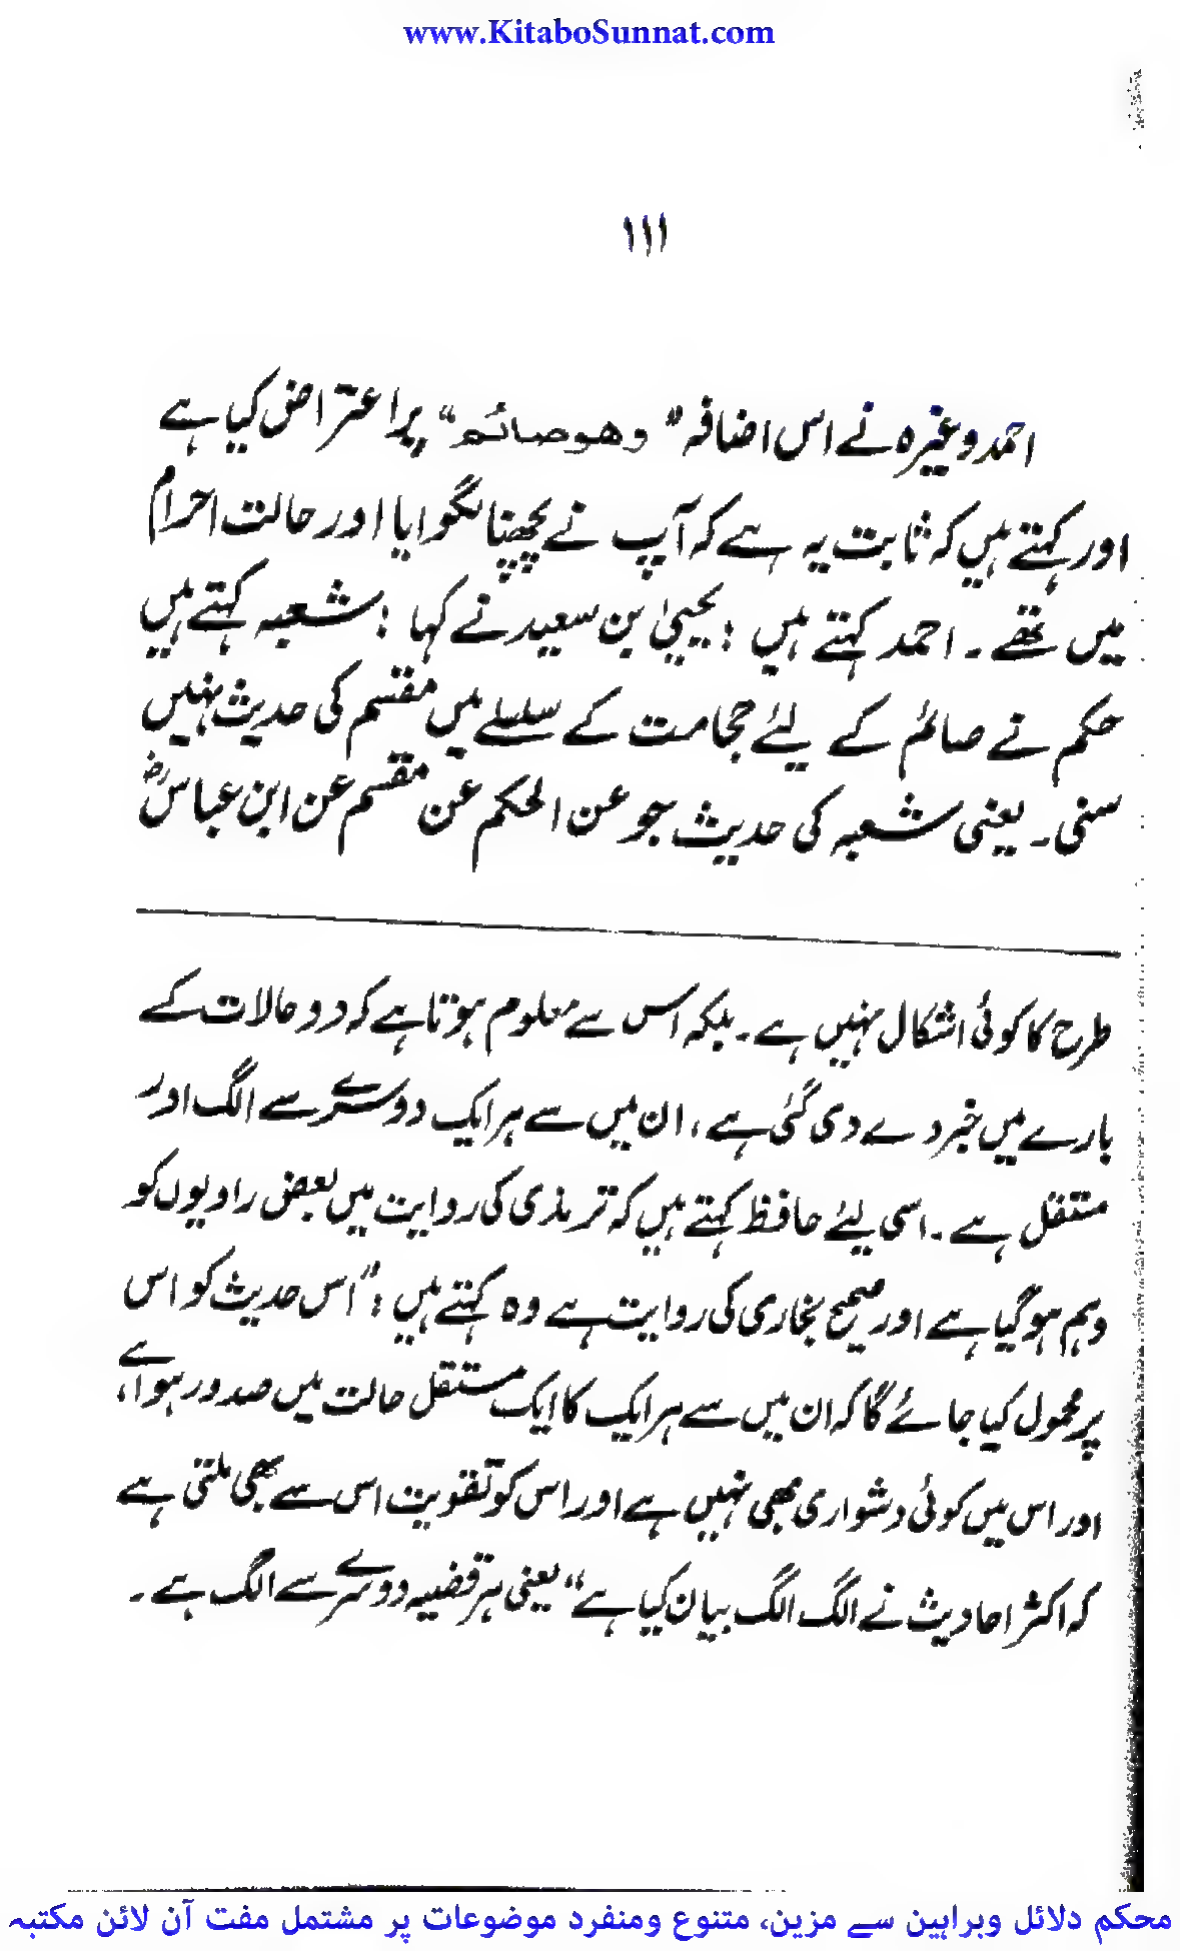 www.KitaboSunnat.com
۱۱۱
احمد وغیرہ نے اس اضافہ " وھو صائم " پر اعتراض کیا ہے
اور کہتے ہیں کہ ثابت یہ ہے کہ آپ نے پچھنا لگوایا اور حالت احرام
میں تھے ۔ احمد کہتے ہیں : یحییٰ بن سعید نے کہا : شعبہ کہتے ہیں
حکم نے صائم کے لئے حجامت کے سلسلے میں مقسم کی حدیث نہیں
سنی ۔ یعنی شعبہ کی حدیث جو عن الحکم عن مقسم عن ابن عباسؓ
طرح کا کوئی اشکال نہیں ہے ۔ بلکہ اس سے معلوم ہوتا ہے کہ دو حالات کے
بارے میں خبر دے دی گئی ہے ، ان میں سے ہر ایک دوسرے سے الگ اور
مستقل ہے ۔ اسی لئے حافظ کہتے ہیں کہ ترمذی کی روایت میں بعض راویوں کو
وہم ہو گیا ہے اور صحیح بخاری کی روایت ہے وہ کہتے ہیں : " اس حدیث کو اس
پر محمول کیا جائے گا کہ ان میں سے ہر ایک کا ایک مستقل حالت میں صدور ہوا ہے ،
اور اس میں کوئی دشواری بھی نہیں ہے اور اس کو تقویت اس سے بھی ملتی ہے
کہ اکثر احادیث نے الگ الگ بیان کیا ہے " یعنی ہر قضیہ دوسرے سے الگ ہے ۔
محکم دلائل وبراہین سے مزین، متنوع ومنفرد موضوعات پر مشتمل مفت آن لائن مکتبہ